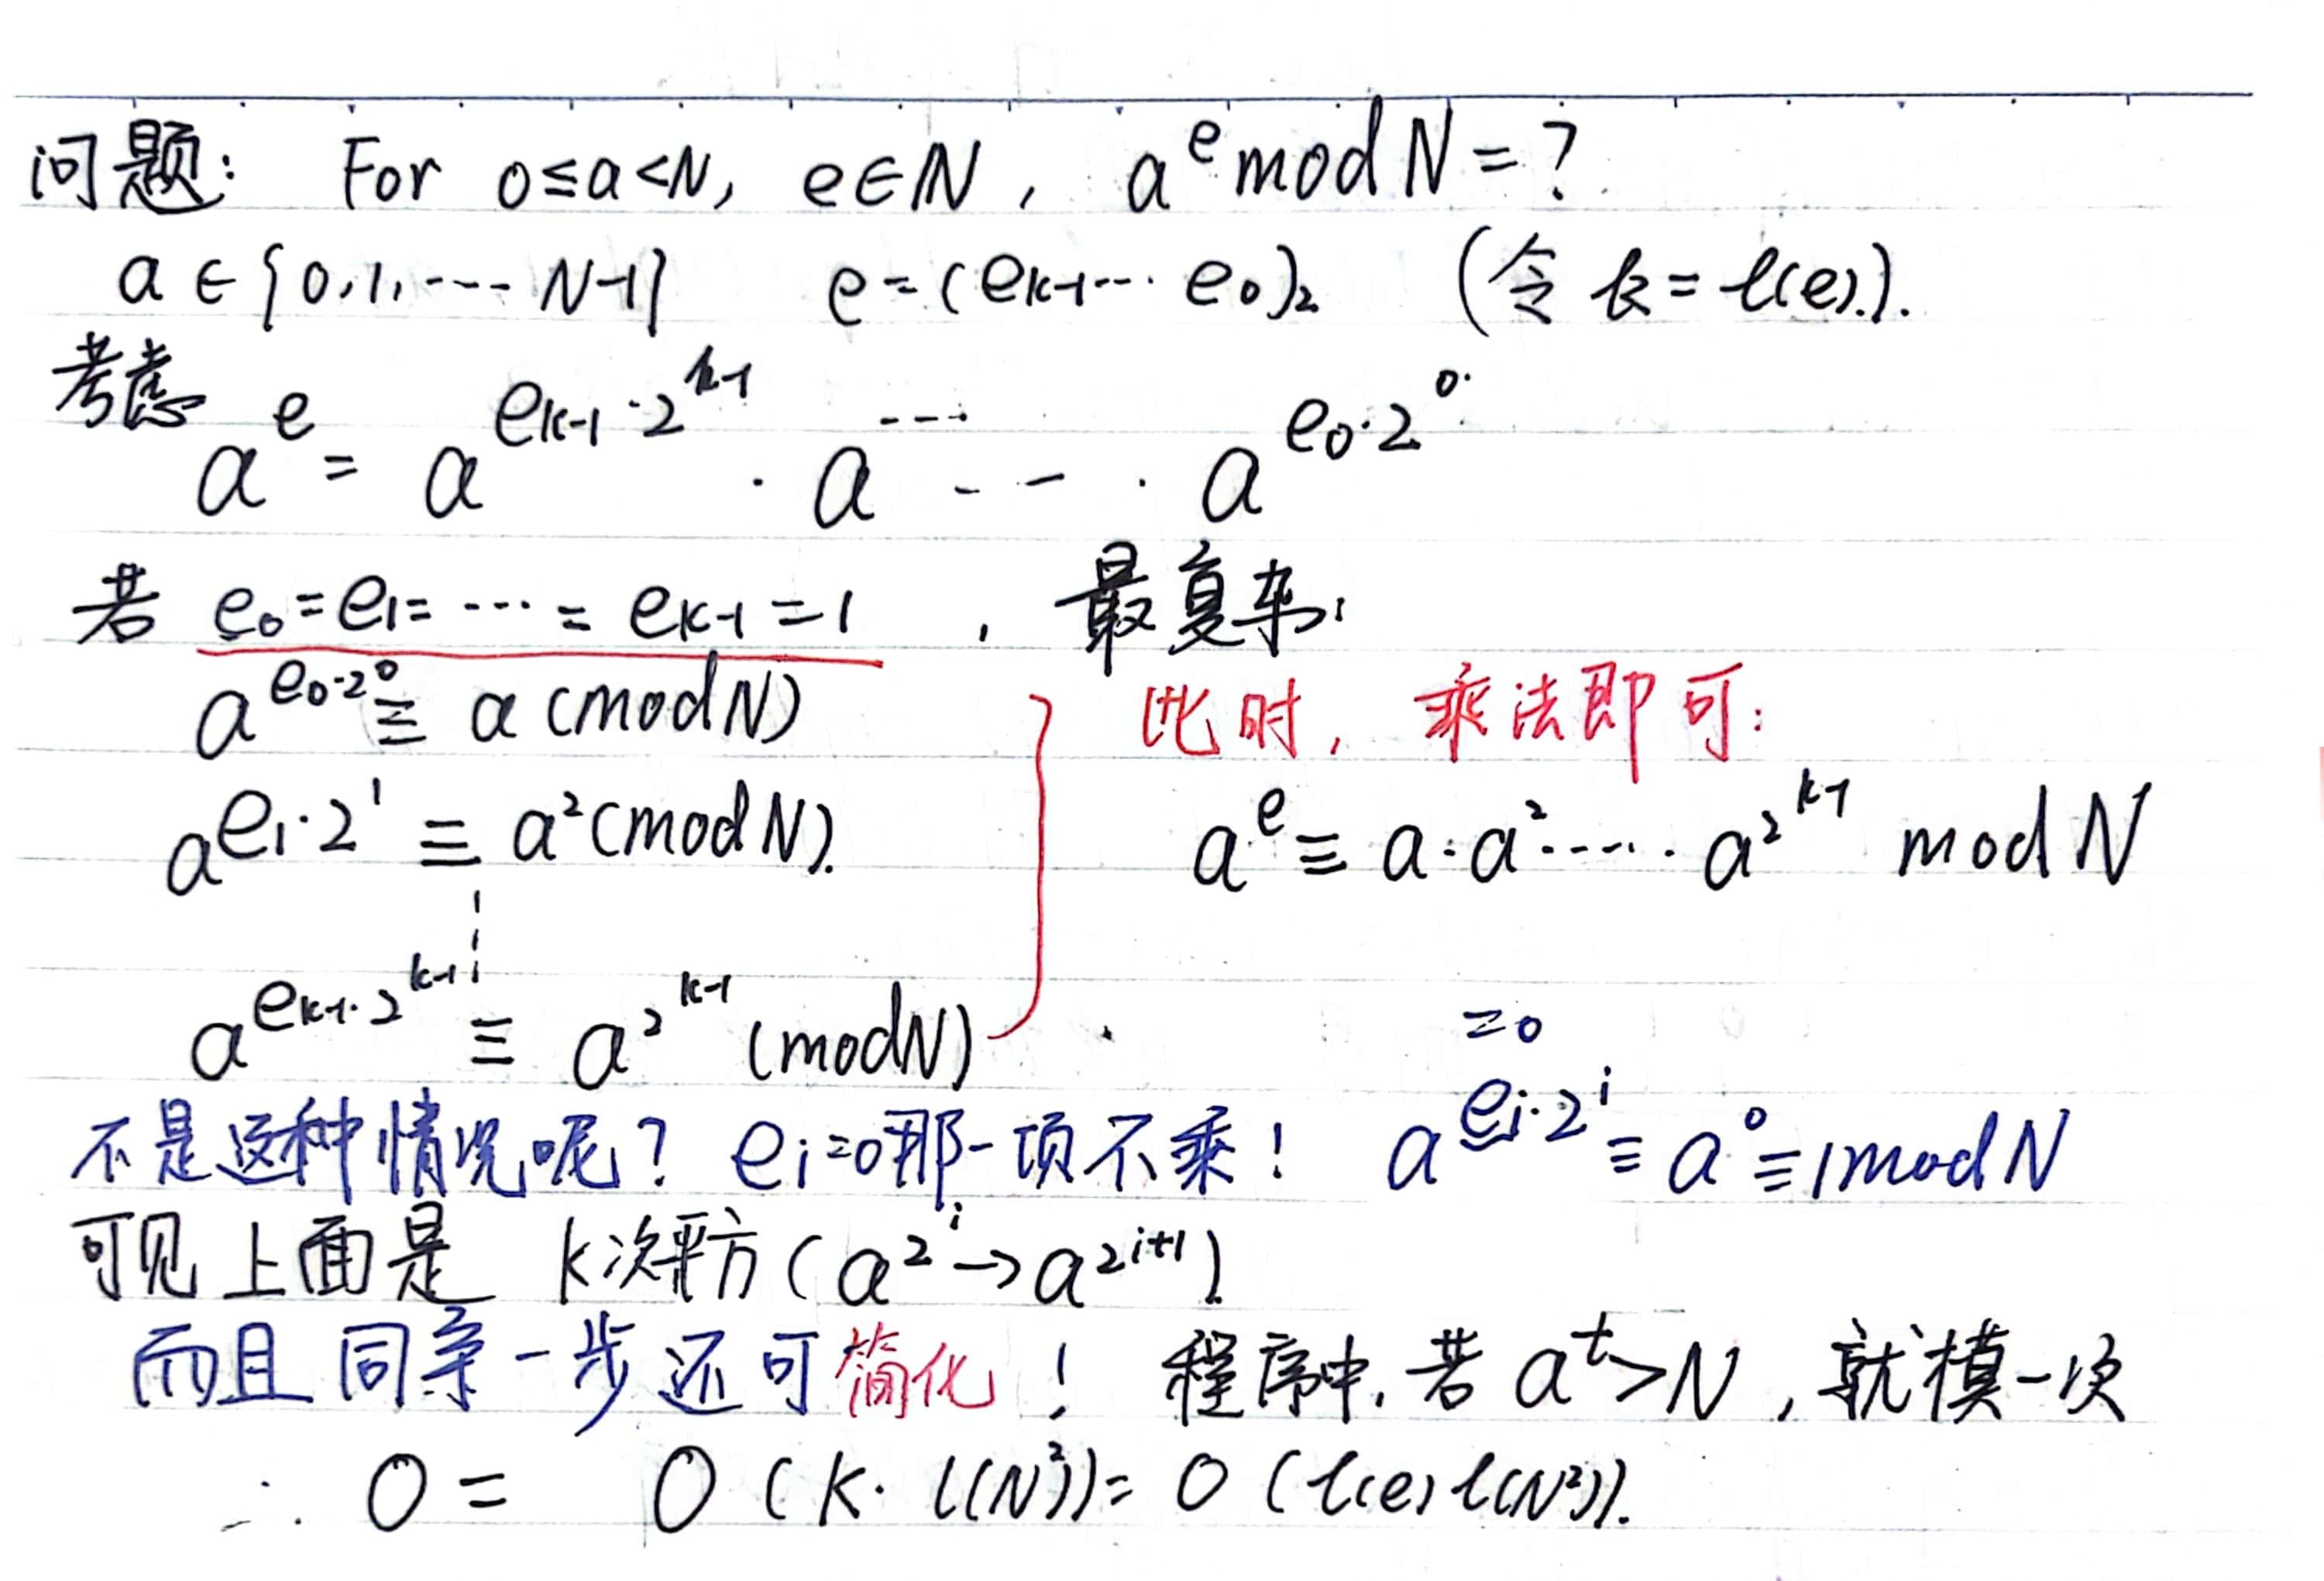 问题: For 0≤a<N, e∈ℕ, a^e mod N = ?
a∈{0,1,---- N-1} e=(e_{k-1}··· e_0)_2 (令 k=ℓ(e)).
考虑
a^e = a^{e_{k-1}·2^{k-1}} · a^{----} -- · a^{e_0·2^0}
若 e_0=e_1= ··· = e_{k-1}=1 , 最复杂:
a^{e_0·2^0} ≡ a (mod N) 此时, 乘法即可:
a^{e_1·2^1} ≡ a^2 (mod N). a^e ≡ a·a^2·----· a^{2^{k-1}} mod N
⋮
a^{e_{k-1}·2^{k-1}} ≡ a^{2^{k-1}} (mod N)
=0
不是这种情况呢? e_i=0那一项不乘! a^{e_i·2^i} ≡ a^0 ≡ 1 mod N
可见上面是 k次平方 (a^{2^i}→a^{2^{i+1}})
而且同余一步还可简化! 程序中, 若 a^t>N , 就模一次
∴ O = O (k· ℓ(N^2)) = O (ℓ(e) ℓ(N^2)).